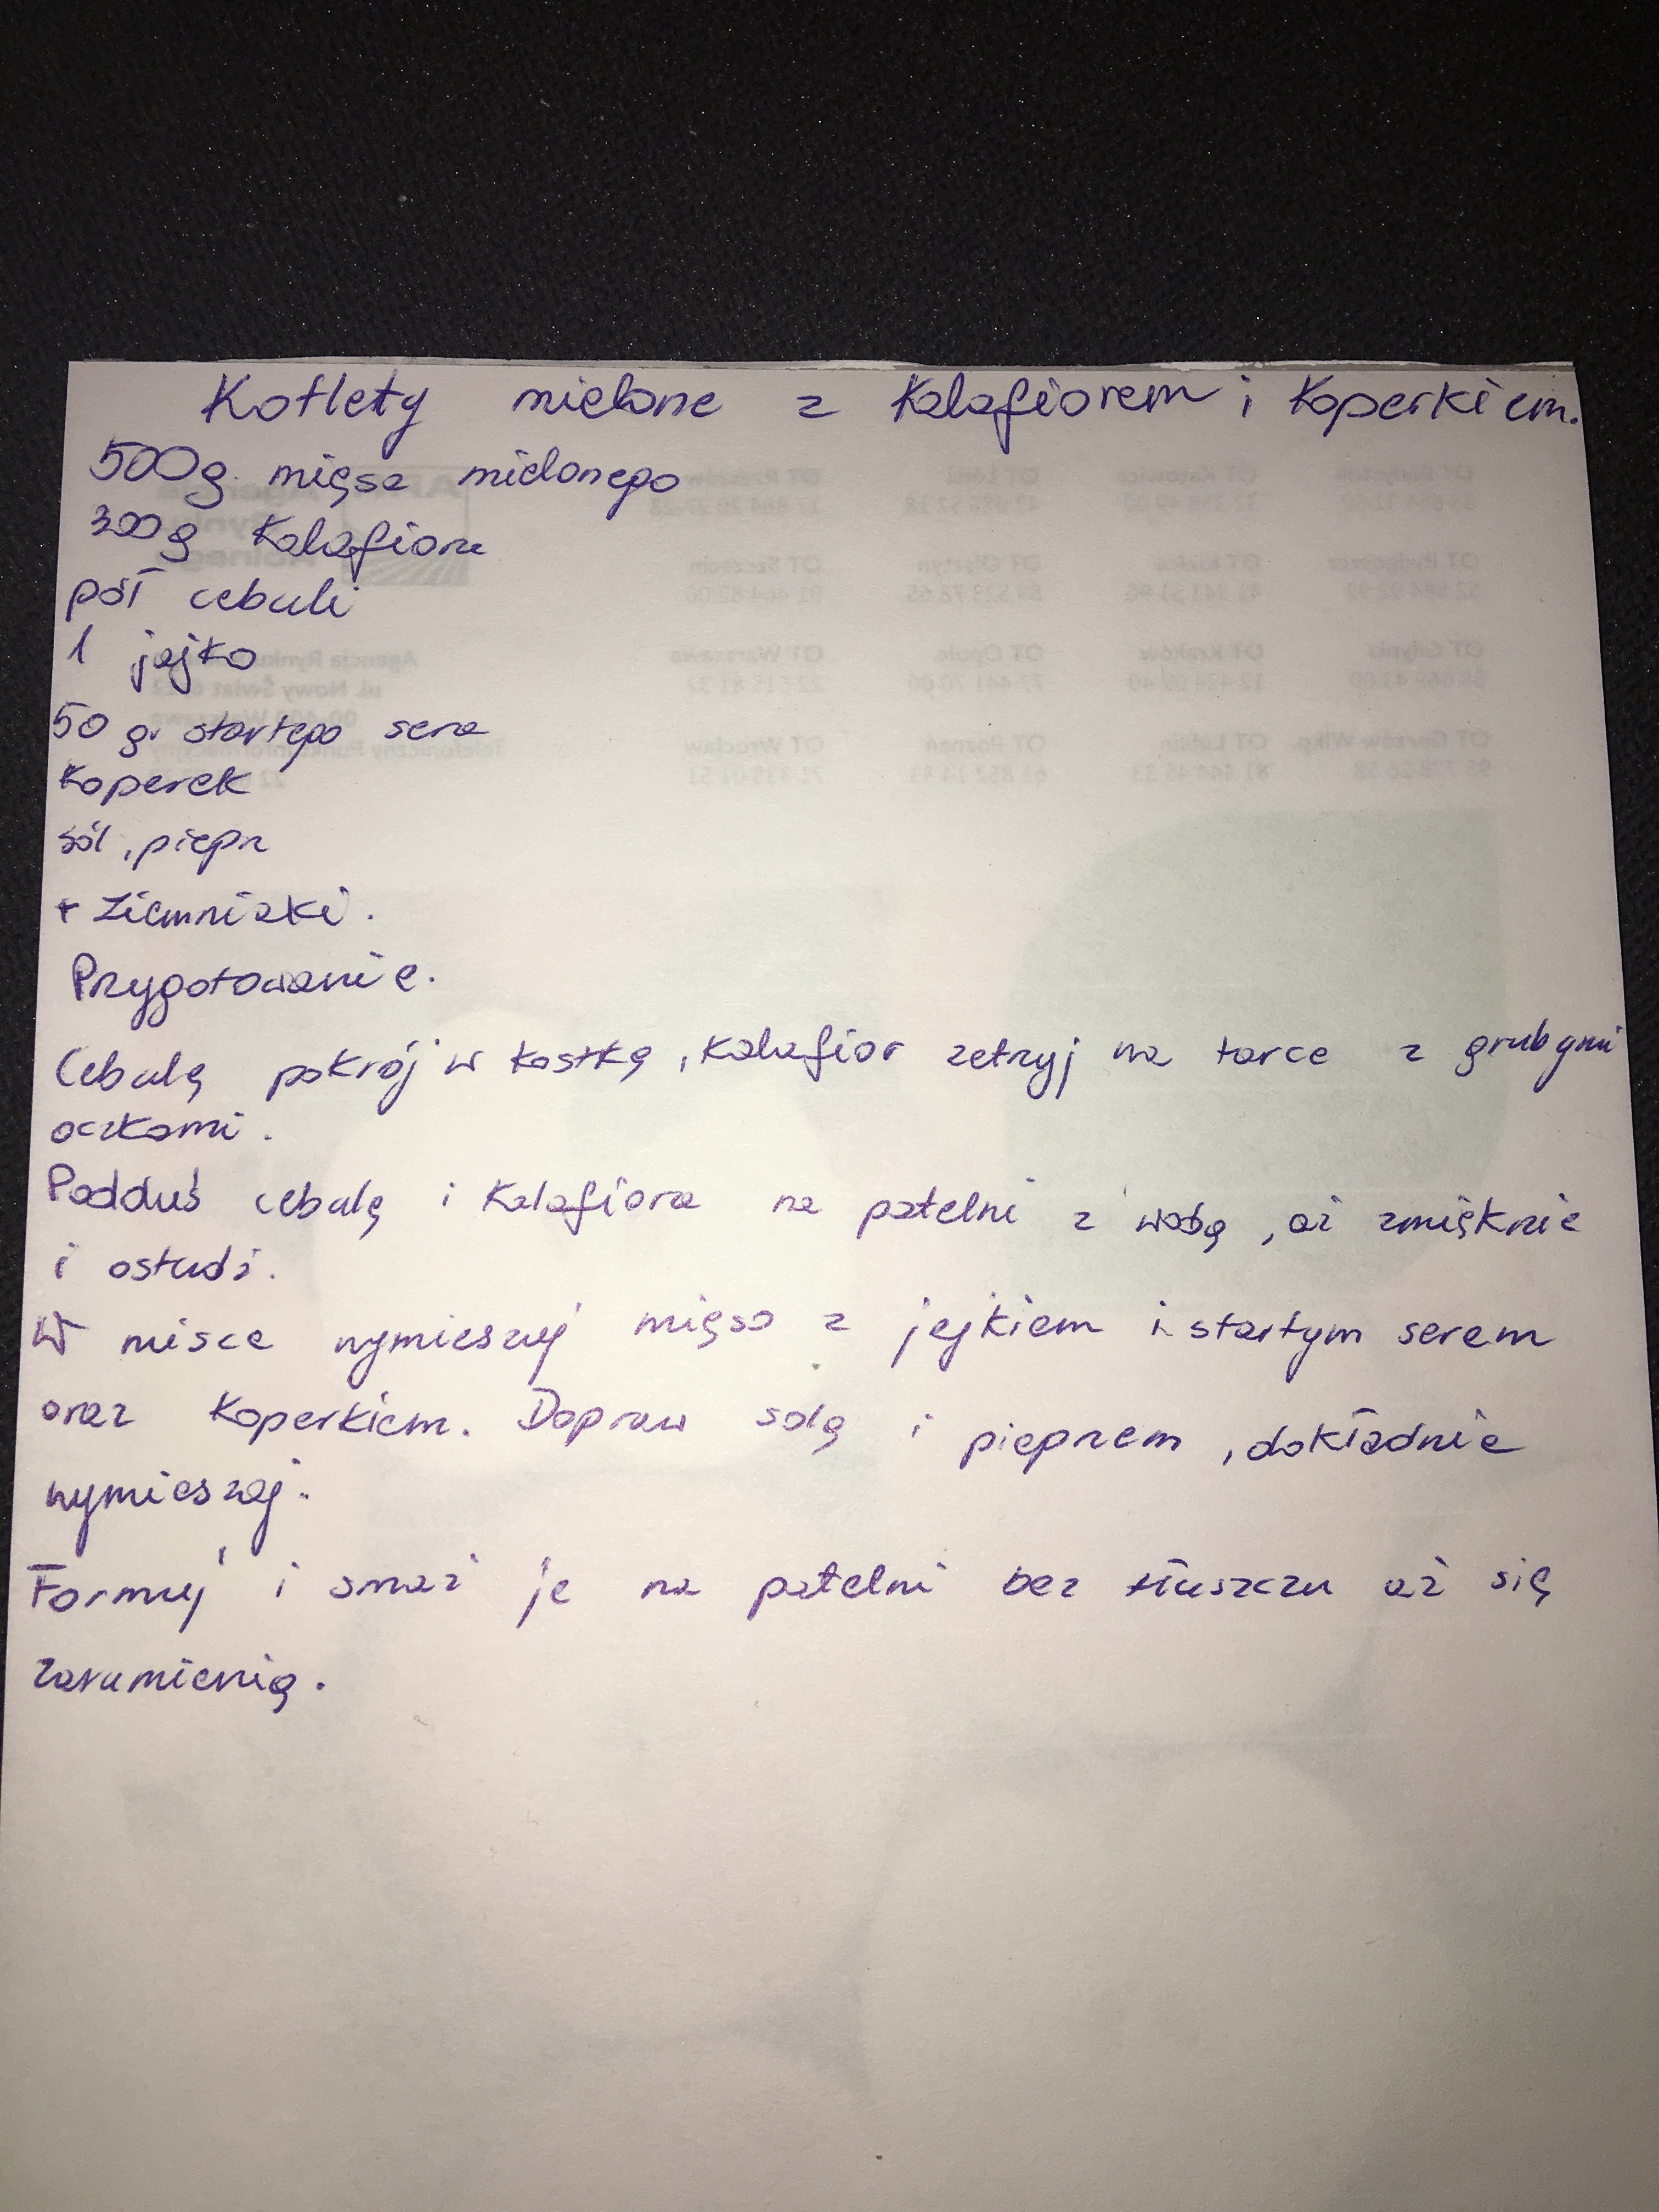 Kotlety mielone z Kalafiorem i Koperkiem.
500g. mięsa mielonego
300g Kalafiora
pół cebuli
1 jajko
50 gr startego sera
Koperek
sól, pieprz
+ Ziemniaki.
Przygotowanie.
Cebulę pokrój w kostkę, kalafior zetrzyj na tarce z grubymi
oczkami.
Podduś cebulę i Kalafiora na patelni z wodą, aż zmięknie
i ostudź.
W misce wymieszaj mięso z jejkiem i startym serem
oraz Koperkiem. Dopraw solą i pieprzem, dokładnie
wymieszaj.
Formuj i smaż je na patelni bez tłuszczu aż się
zarumienią.